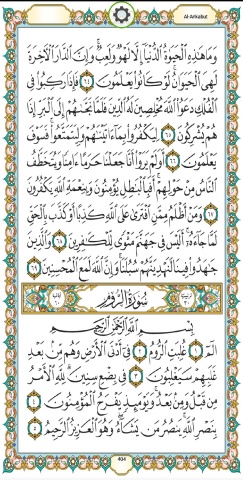 Al-Ankabut
وَمَا هَٰذِهِ الْحَيَوٰةُ الدُّنْيَا إِلَّا لَهْوٌ وَلَعِبٌ ۚ وَإِنَّ الدَّارَ الْآخِرَةَ
لَهِيَ الْحَيَوَانُ ۚ لَوْ كَانُوا يَعْلَمُونَ ٦٤ فَإِذَا رَكِبُوا فِي
الْفُلْكِ دَعَوُا اللَّهَ مُخْلِصِينَ لَهُ الدِّينَ فَلَمَّا نَجَّىٰهُمْ إِلَى الْبَرِّ إِذَا
هُمْ يُشْرِكُونَ ٦٥ لِيَكْفُرُوا بِمَا ءَاتَيْنَٰهُمْ وَلِيَتَمَتَّعُوا ۖ فَسَوْفَ
يَعْلَمُونَ ٦٦ أَوَلَمْ يَرَوْا أَنَّا جَعَلْنَا حَرَمًا ءَامِنًا وَيُتَخَطَّفُ
النَّاسُ مِنْ حَوْلِهِمْ ۚ أَفَبِالْبَٰطِلِ يُؤْمِنُونَ وَبِنِعْمَةِ اللَّهِ يَكْفُرُونَ
٦٧ وَمَنْ أَظْلَمُ مِمَّنِ افْتَرَىٰ عَلَى اللَّهِ كَذِبًا أَوْ كَذَّبَ بِالْحَقِّ
لَمَّا جَاءَهُ ۚ أَلَيْسَ فِي جَهَنَّمَ مَثْوًى لِلْكَٰفِرِينَ ٦٨ وَالَّذِينَ
جَٰهَدُوا فِينَا لَنَهْدِيَنَّهُمْ سُبُلَنَا ۚ وَإِنَّ اللَّهَ لَمَعَ الْمُحْسِنِينَ ٦٩
سُورَةُ الرُّومِ
بِسْمِ اللَّهِ الرَّحْمَٰنِ الرَّحِيمِ
الٓمٓ ١ غُلِبَتِ الرُّومُ ٢ فِي أَدْنَى الْأَرْضِ وَهُمْ مِنْ بَعْدِ
غَلَبِهِمْ سَيَغْلِبُونَ ٣ فِي بِضْعِ سِنِينَ ۗ لِلَّهِ الْأَمْرُ
مِنْ قَبْلُ وَمِنْ بَعْدُ ۚ وَيَوْمَئِذٍ يَفْرَحُ الْمُؤْمِنُونَ
بِنَصْرِ اللَّهِ ۚ يَنْصُرُ مَنْ يَشَاءُ ۖ وَهُوَ الْعَزِيزُ الرَّحِيمُ
404